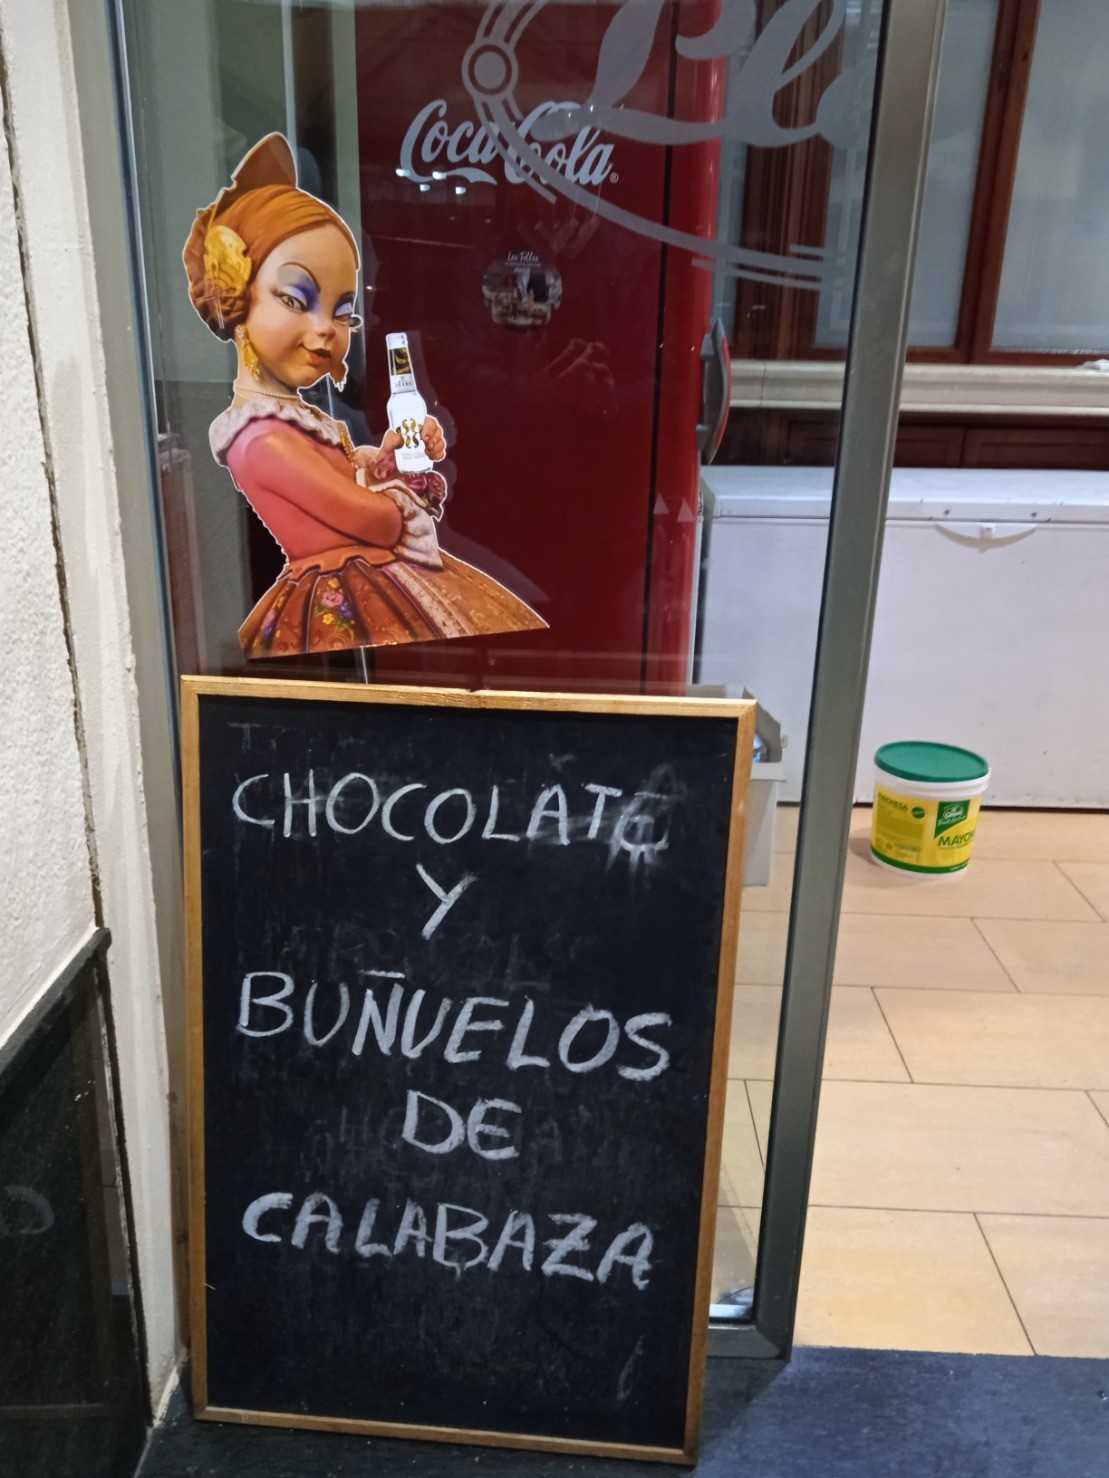 Coca-Cola
Les Filles
CHOCOLATE
Y
BUÑUELOS
DE
CALABAZA
MAYONESA
MAYON